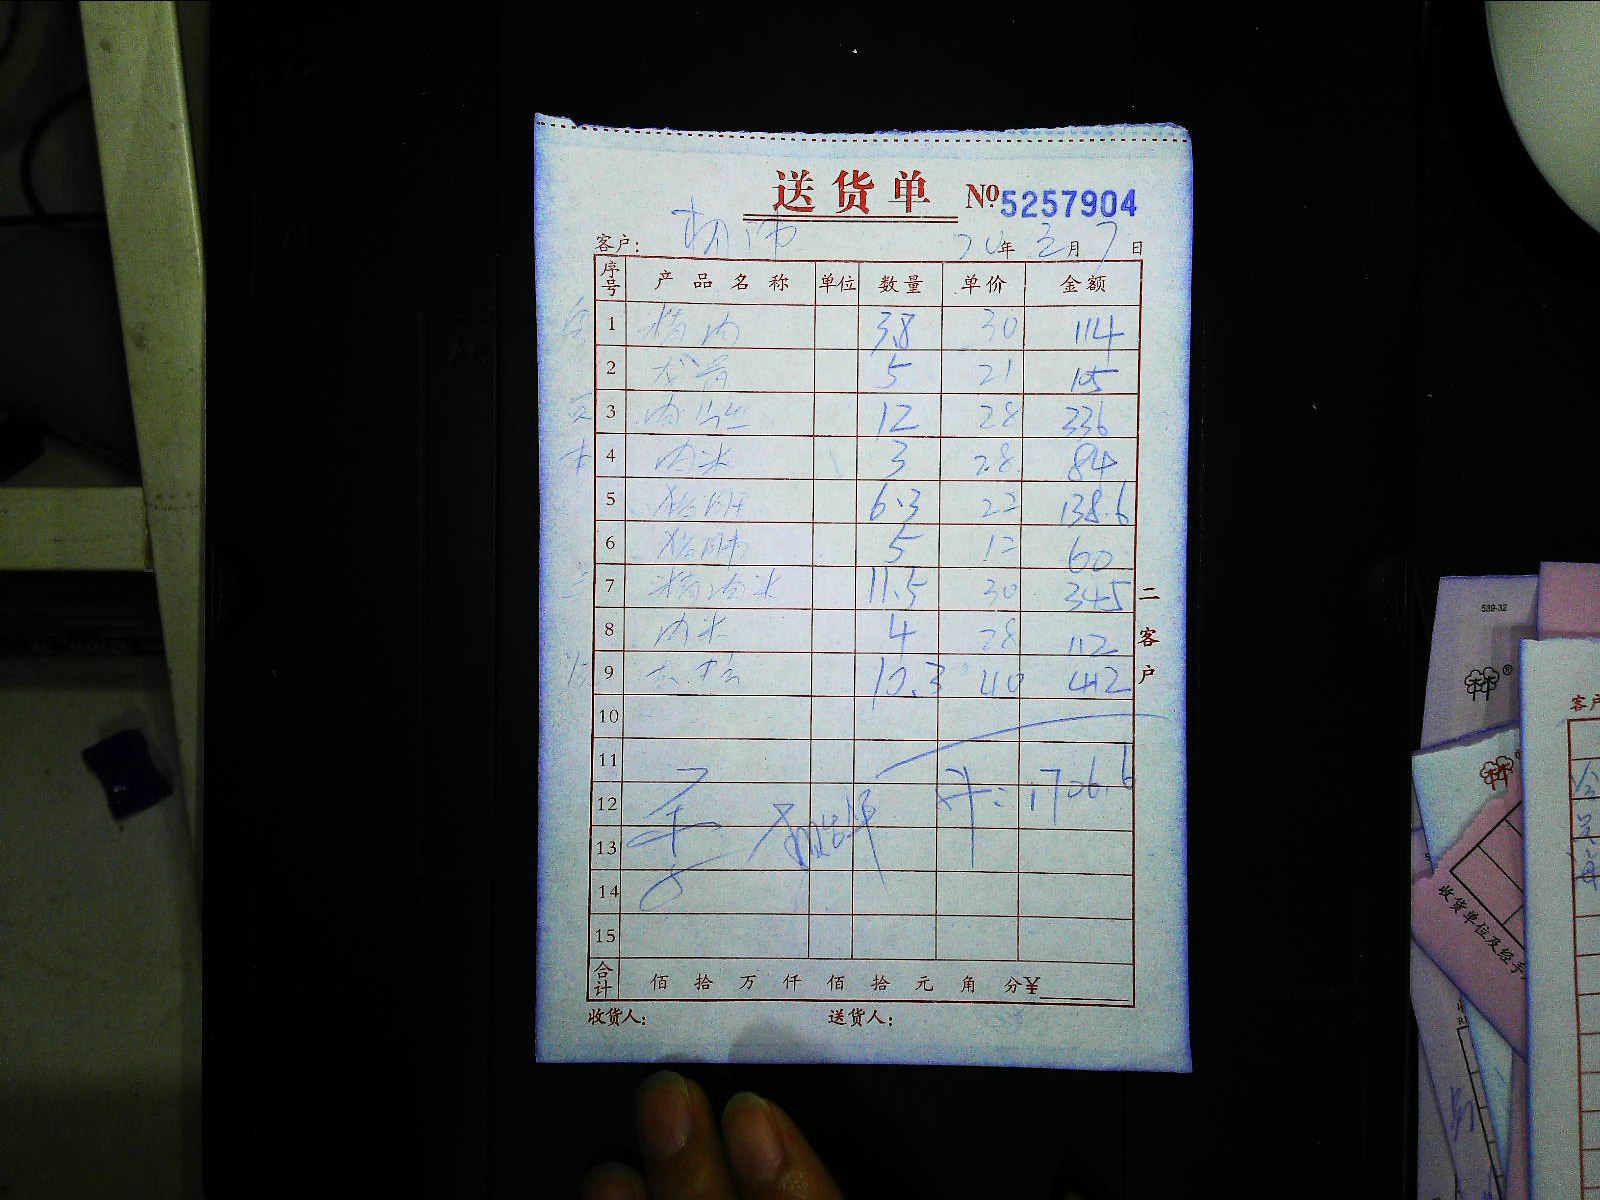 送货单 №5257904
客户: 年 月 7 日
序号 产品名称 单位 数量 单价 金额
1 精肉 3.8 30 114
2 龙骨 5 21 105
3 肉丝 12 28 336
4 肉米 3 28 84
5 猪肝 6.3 22 138.6
6 猪肺 5 12 60
7 精肉米 11.5 30 345
8 肉米 4 28 112
9 10.3 40 412
10
11
12 计: 1706.6
13
14
15
合计 佰 拾 万 仟 佰 拾 元 角 分¥
收货人: 送货人:
二客户
539-32
林®
客户
收货单位及经手